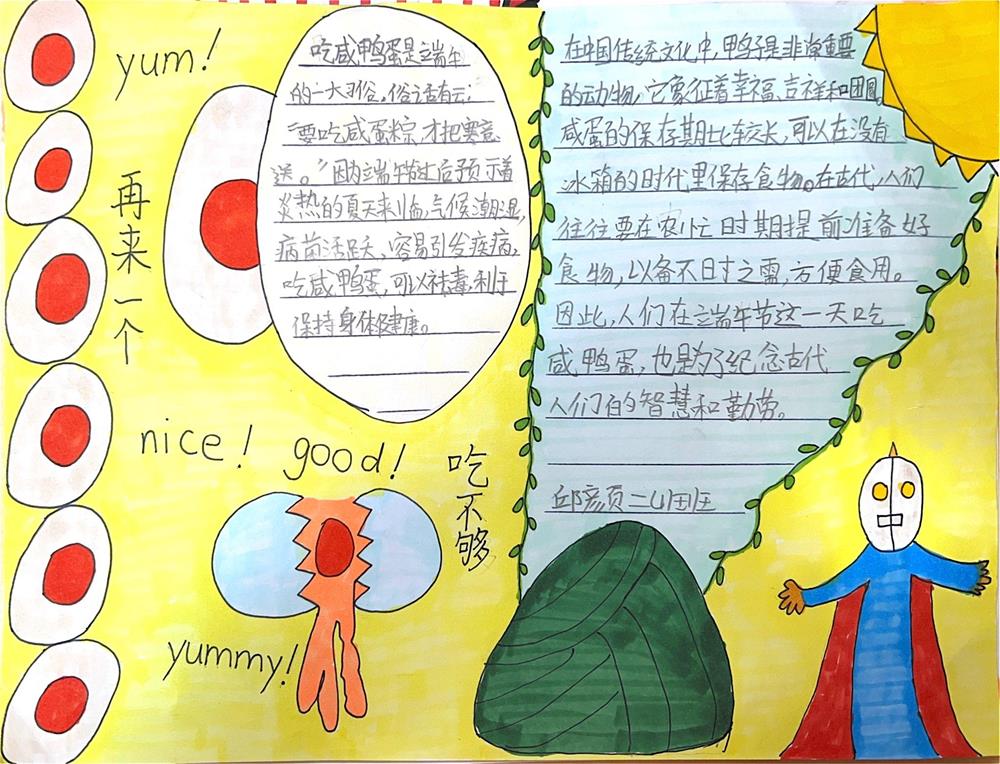 yum!
再来一个
吃咸鸭蛋是端午
的一大习俗，俗话有云：
“要吃咸蛋粽，才把寒意
送。”因为端午节过后预示着
炎热的夏天来临，气候潮湿，
病菌活跃，容易引发疾病，
吃咸鸭蛋，可以祛毒，利于
保持身体健康。
nice! good!
吃不够
yummy!
在中国传统文化中，鸭子是非常重要
的动物，它象征着幸福、吉祥和团圆。
咸蛋的保存期比较长，可以在没有
冰箱的时代里保存食物。在古代，人们
往往要在农忙时期提前准备好
食物，以备不时之需，方便食用。
因此，人们在端午节这一天吃
咸鸭蛋，也是为了纪念古代
人们的智慧和勤劳。
邱彦页 二